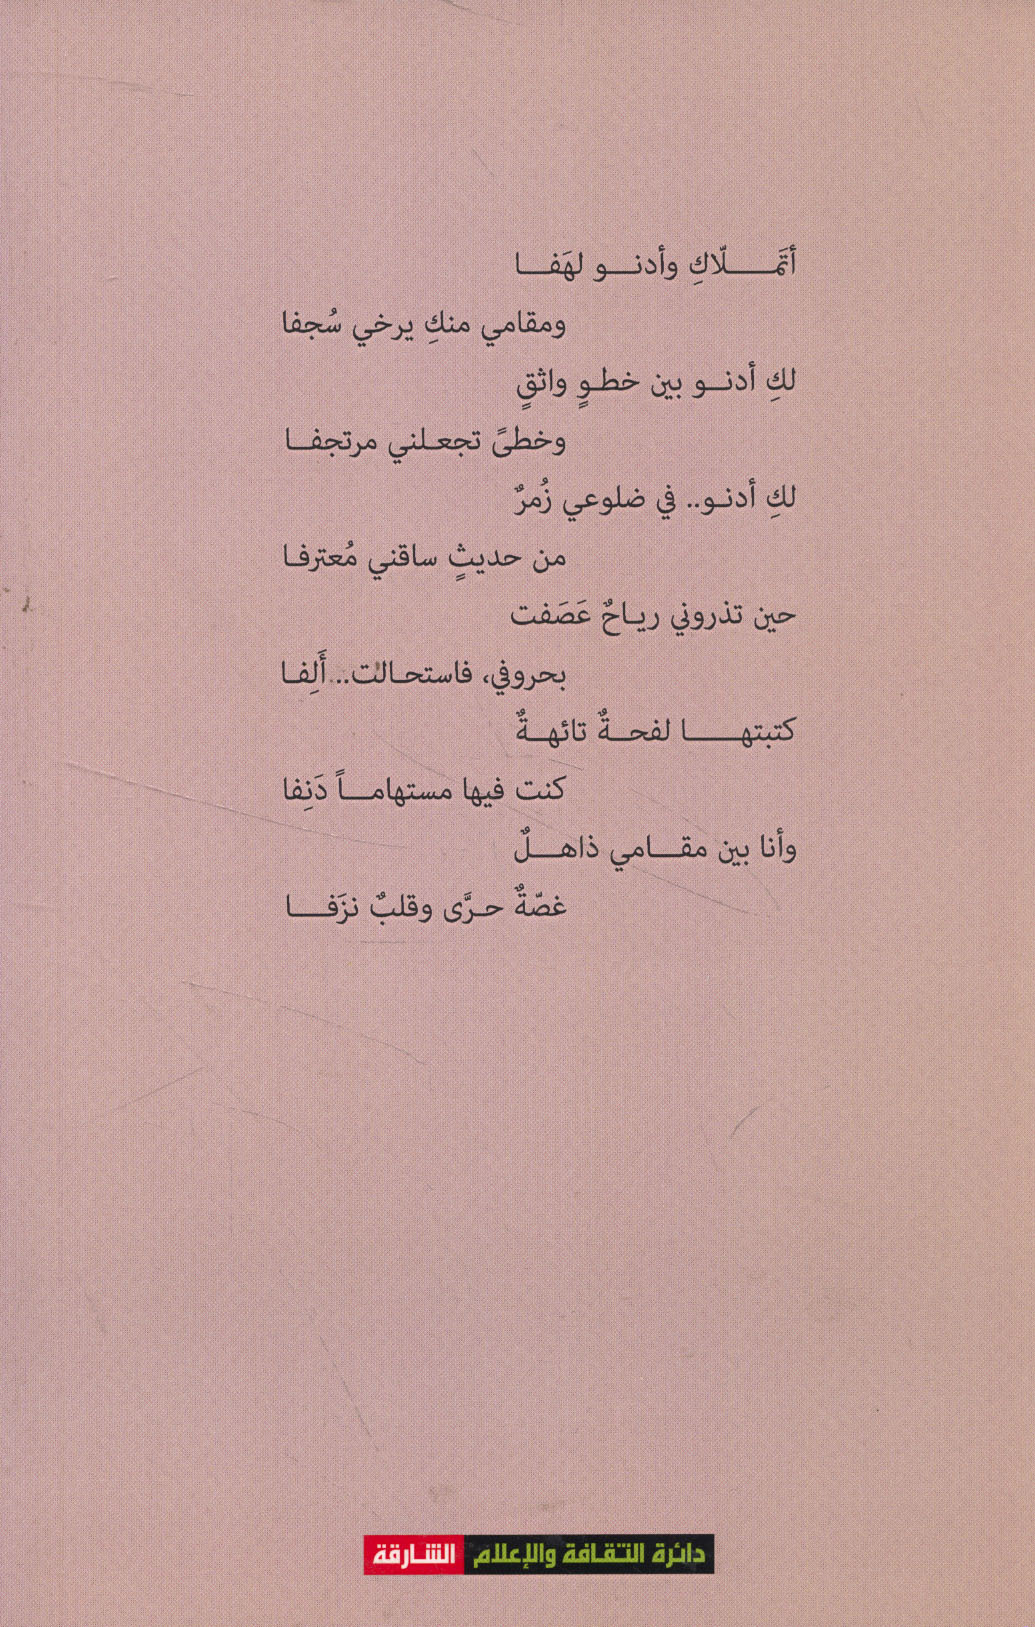 أتَمَــــلّاكِ وأدنـــو لهَفـــا
ومقامي منكِ يرخي سُجفا
لكِ أدنـــو بين خطـوٍ واثقٍ
وخطىً تجعـلني مرتجفــا
لكِ أدنـو.. في ضلوعي زُمرٌ
من حديثٍ ساقني مُعترفـا
حين تذروني ريـاحٌ عَصَفت
بحروفي، فاستحـالت.. أَلِفـا
كتبتهـــــا لفحــةٌ تائهــةٌ
كنت فيها مستهامـــاً دَنِفا
وأنا بين مقـــامي ذاهـــلٌ
غصّةٌ حـرَّى وقلبٌ نزَفـــا
دائرة الثقافة والإعلام الشارقة